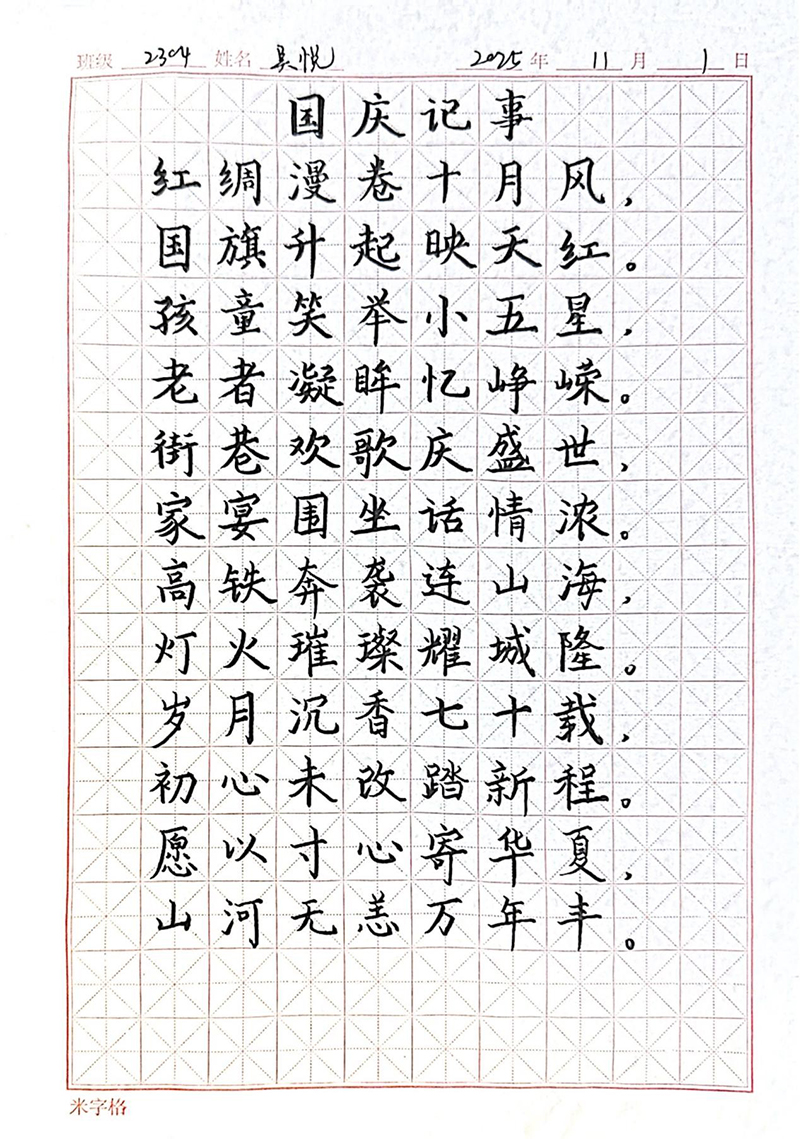 班级 2304 姓名 吴悦 2025年 11月 1日
国庆记事
红绸漫卷十月风，
国旗升起映天红。
孩童笑举小五星，
老者凝眸忆峥嵘。
街巷欢歌庆盛世，
家宴围坐话情浓。
高铁奔袭连山海，
灯火璀璨耀城隆。
岁月沉香七十载，
初心未改踏新程。
愿以寸心寄华夏，
山河无恙万年丰。
米字格